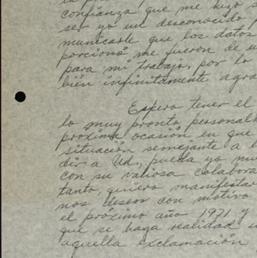 confianza que me hizo s
ser yo un desconocido p
municarle que los datos
porcionó me fueron de u
para mi trabajo, por lo
bien infinitamente agra
Espero tener el
lo muy pronto personal
próxima ocasión en que
situación semejante a l
dir a Ud. pueda yo mu
con su valiosa colabora
tanto, quiero manifesta
nos deseos con motivo
el próximo año 1971 y
que se haga realidad
aquella exclamación